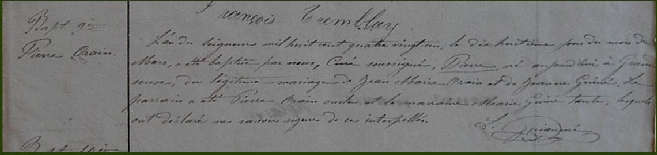 François Tremblay
Bapt. 9e
Pierre Orain
L'an du Seigneur mil huit cent quatre vingt un, le dix huitième jour du mois de
Mars, a été baptisé par nous, Curé soussigné, Pierre, né aujourd'hui à
du légitime mariage de Jean Marie Orain et de Jeanne Le
parrain a été Pierre Orain oncle et la marraine Marie tante, lesquels
ont déclaré ne savoir signer de ce interpellés